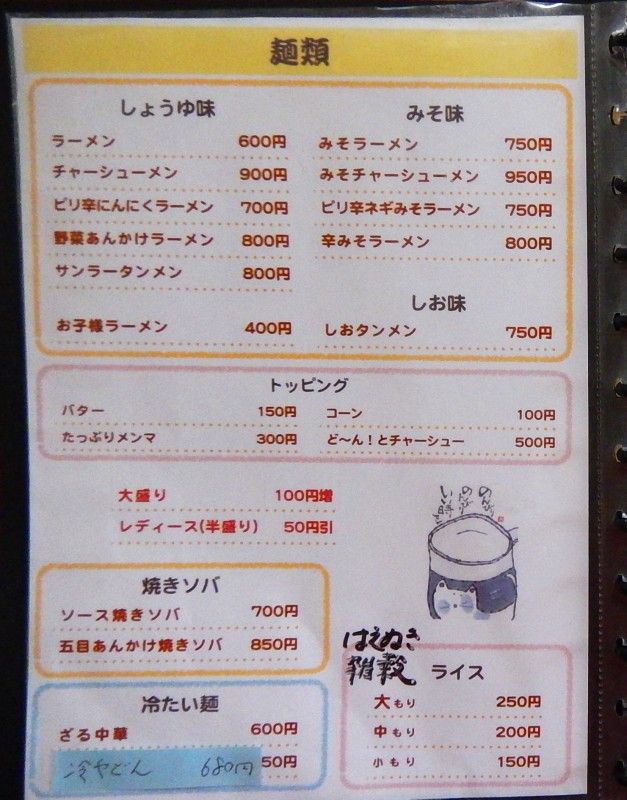 麺類
しょうゆ味
ラーメン 600円
チャーシューメン 900円
ピリ辛にんにくラーメン 700円
野菜あんかけラーメン 800円
サンラータンメン 800円
お子様ラーメン 400円
みそ味
みそラーメン 750円
みそチャーシューメン 950円
ピリ辛ネギみそラーメン 750円
辛みそラーメン 800円
しお味
しおタンメン 750円
トッピング
バター 150円
たっぷりメンマ 300円
コーン 100円
ど〜ん！とチャーシュー 500円
大盛り 100円増
レディース(半盛り) 50円引
焼きソバ
ソース焼きソバ 700円
五目あんかけ焼きソバ 850円
冷たい麺
ざる中華 600円
冷やどん 680円
50円
はえぬき
雑穀
ライス
大もり 250円
中もり 200円
小もり 150円